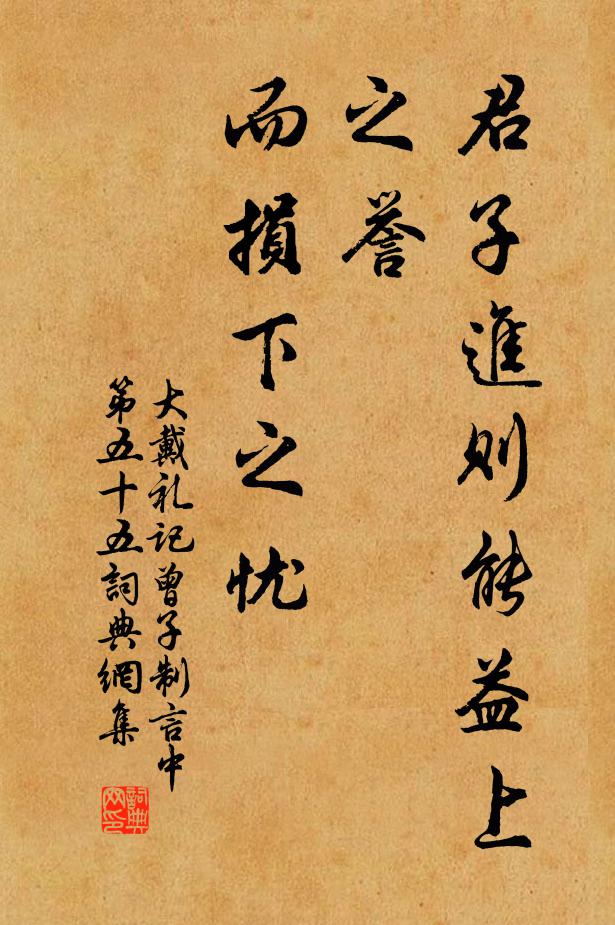 君子進則能益上
之譽
而損下之忧
大戴礼記曾子制言中
第五十五詞典網集
詞典网印